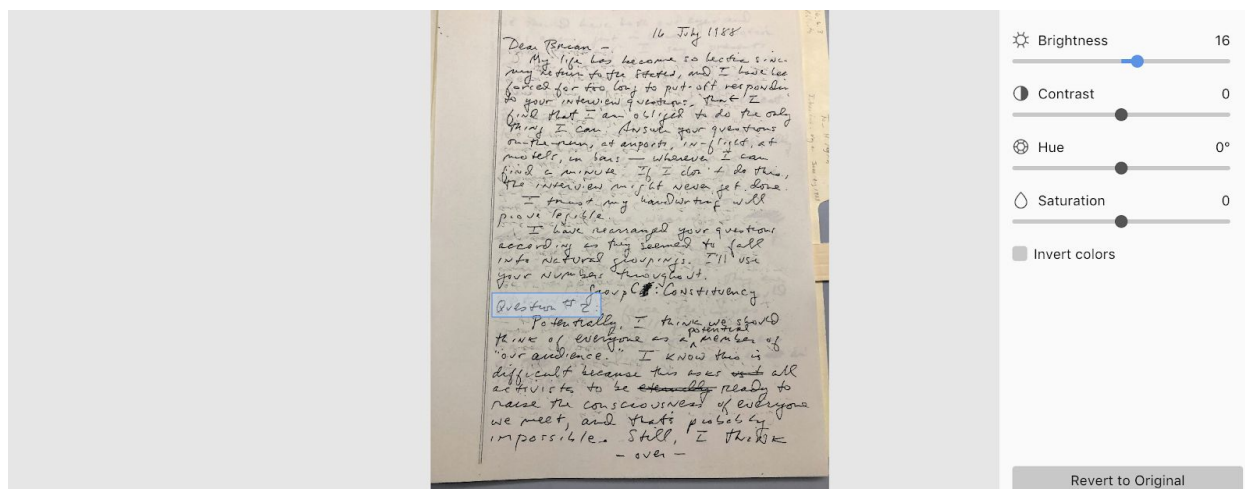 16 July 1988
Dear Brian –
My life has become so hectic since
my return to the States, and I have been
forced for too long to put-off responding
to your interview questions, that I
find that I am obliged to do the only
thing I can. Answer your questions
on-the-run, at airports, in-flight, at
motels, in bars — wherever I can
find a minute. If I don't do this,
the interview might never get done.
I trust my handwriting will
prove legible.
I have rearranged your questions
according as they seemed to fall
into natural groupings. I'll use
your numbers throughout.
Group C: Constituency
Question # 2:
Potentially, I think we should
think of everyone as a potential member of
"our audience." I know this is
difficult because this asks all
activists to be eternally ready to
raise the consciousness of everyone
we meet, and that's probably
impossible. Still, I think
– over –
Brightness 16
Contrast 0
Hue 0°
Saturation 0
Invert colors
Revert to Original